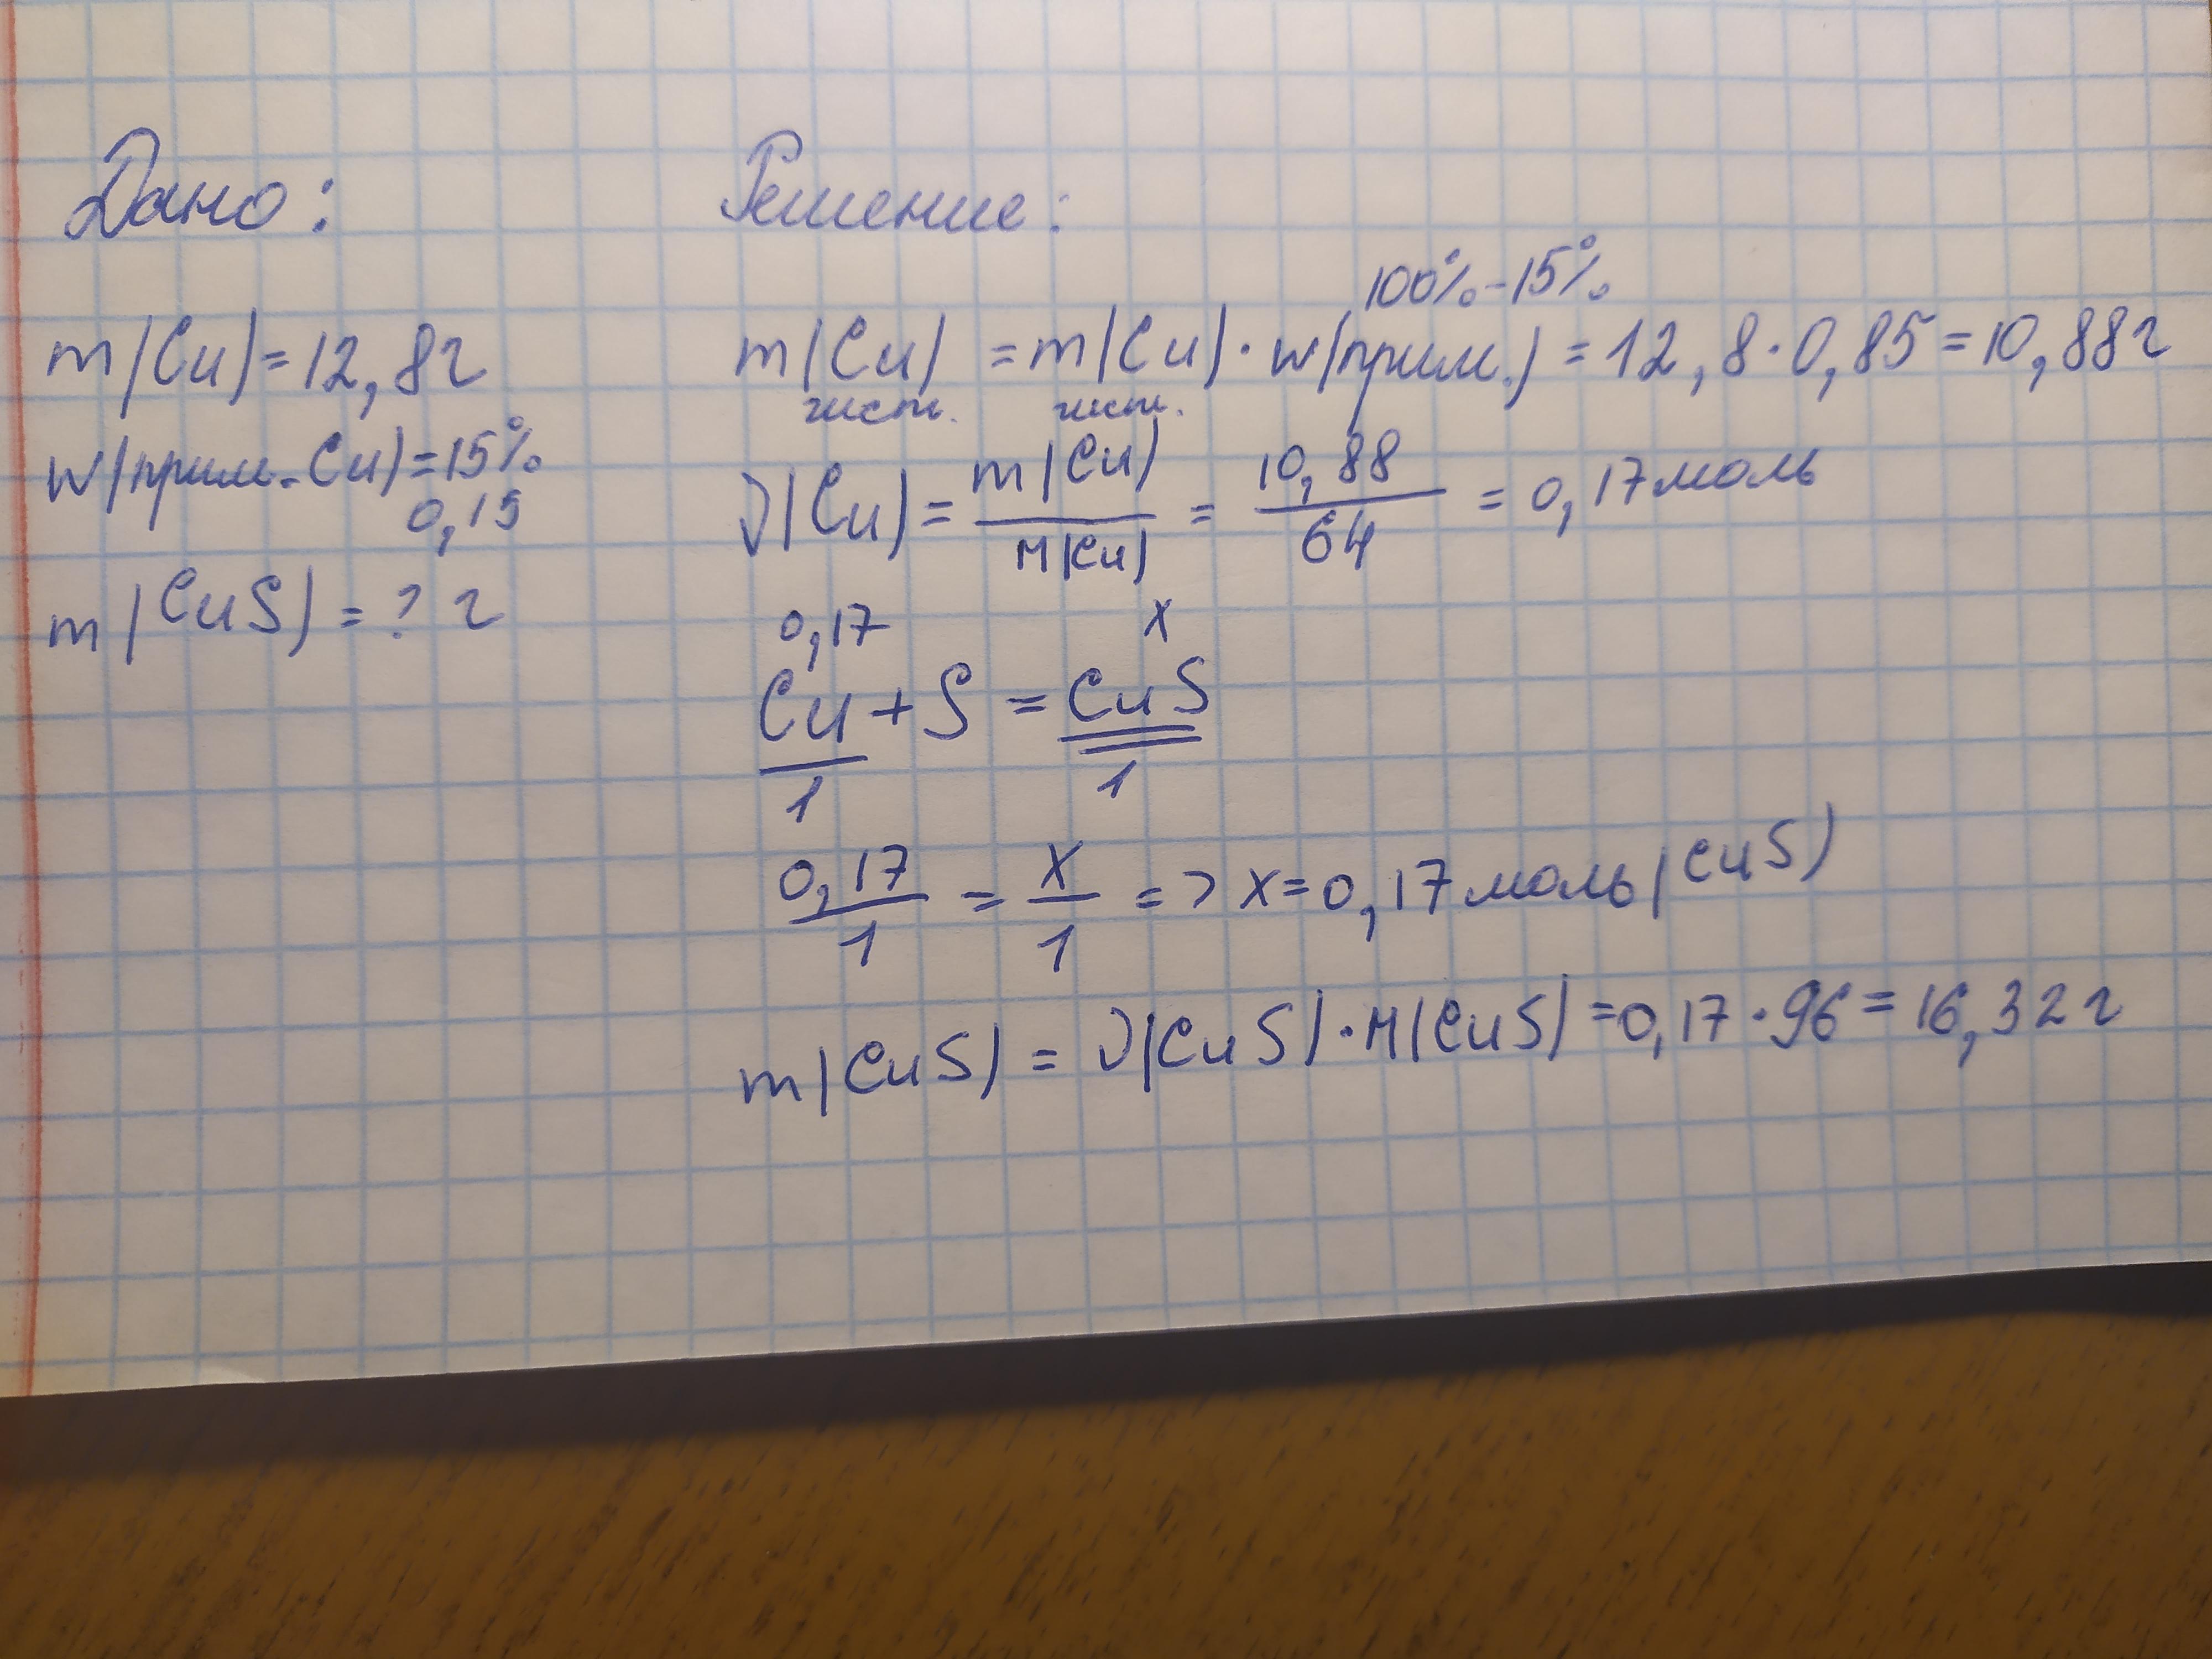 Дано:
m(Cu)=12,8г
w(прим. Cu)=15%
0,15
m(CuS)=? г
Решение:
100%-15%
m(Cu) = m(Cu)·w(прим.) = 12,8·0,85=10,88г
чист. чист.
ν(Cu)= m(Cu)/M(Cu) = 10,88/64 = 0,17моль
0,17 x
Cu+S = CuS
1 1
0,17/1 = x/1 => x=0,17моль(CuS)
m(CuS) = ν(CuS)·M(CuS)=0,17·96=16,32г